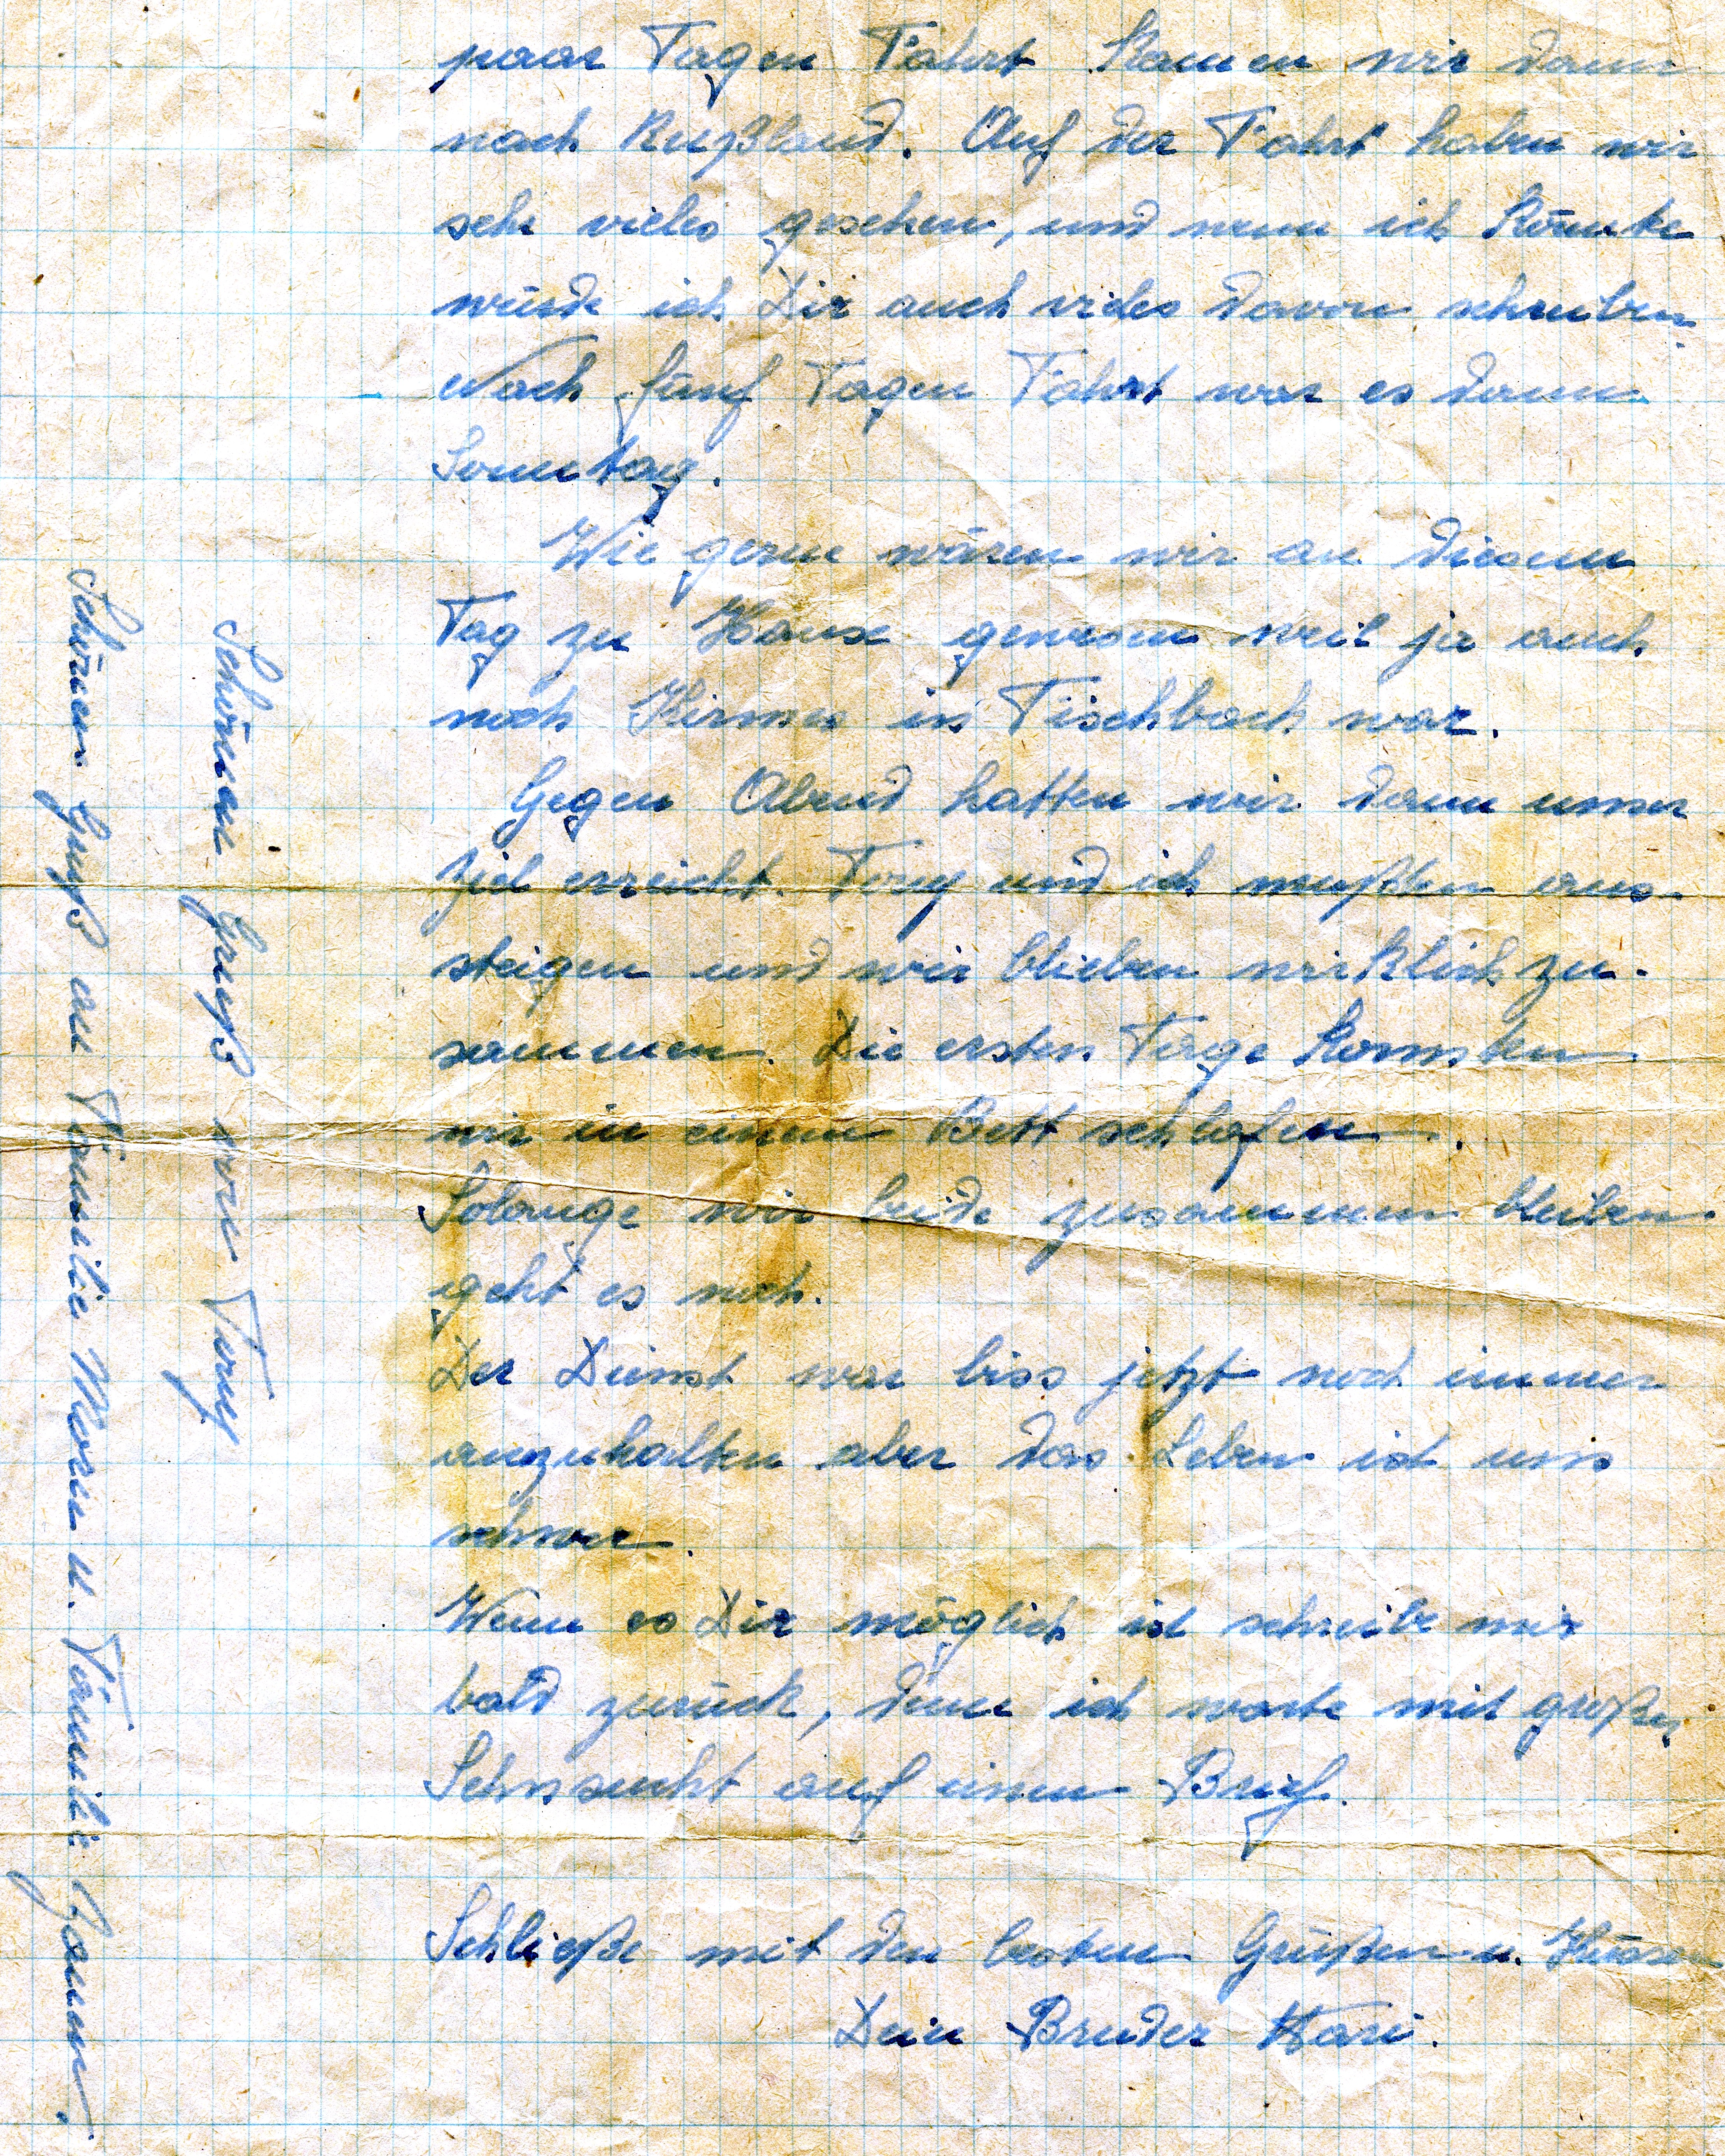 paar Tagen Fahrt kamen wir dann
nach Rußland. Auf der Fahrt haben wir
sehr vieles gesehen, und wenn ich könnte
würde ich Dir auch vieles davon schreiben.
Nach fünf Tagen Fahrt war es dann
Sonntag.
Wie gerne wären wir an diesem
Tag zu Hause gewesen weil ja auch
noch Kirmes in Fischbach war.
Gegen Abend hatten wir dann unser
Ziel erreicht. Tony und ich mußten aus-
steigen und wir blieben wirklich zu-
sammen. Die ersten Tage konnten
wir in einem Bett schlafen.
Solange wir beide zusammen bleiben
geht es noch.
Der Dienst war biss jetzt noch immer
auszuhalten aber das Leben ist uns
schwer.
Wenn es Dir möglich ist schreibe mir
bald zurück, denn ich warte mit großer
Sehnsucht auf einen Brief.
Schließe mit den besten Grüßen u. Küssen
Dein Bruder
Schönen Gruß von Tony
Schönen Gruß an Familie u. Familie